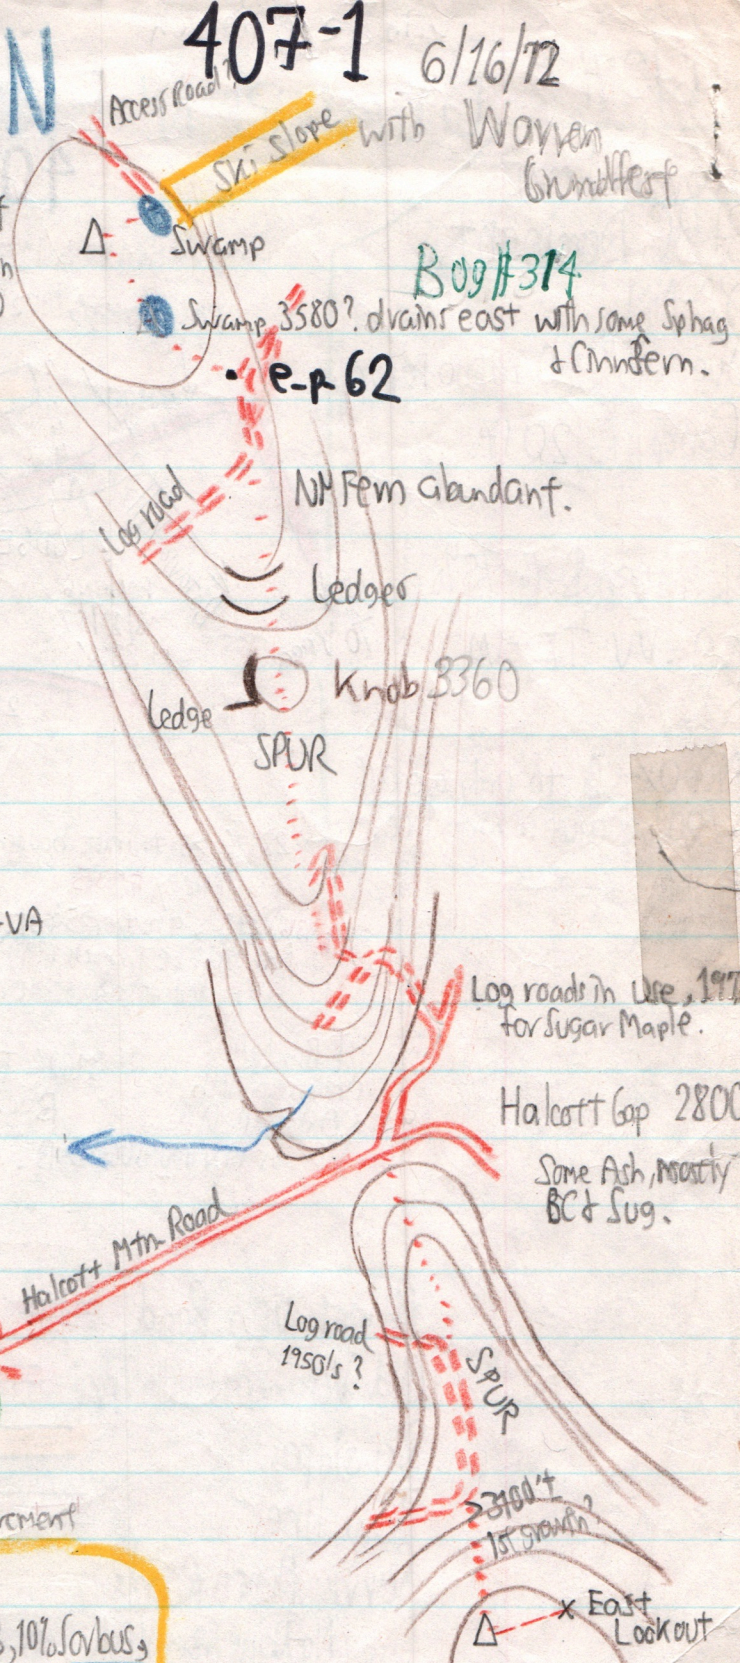 N
407-1
6/16/72
Access Road?
Ski slope
with Warren
Swamp
Bog #314
Swamp 3580? drains east with some Sphag
& Cinnfern.
e-p 62
Log road
NM Fern abundant.
Ledges
Ledge
Knob 3360
SPUR
-VA
Log roads in use, 197
for Sugar Maple.
Halcott Gap 2800
Some Ash, mostly
BC & Sug.
Halcott Mtn Road
Log road
1950's?
SPUR
1st growth?
rement
East
Lookout
, 10% Sorbus,